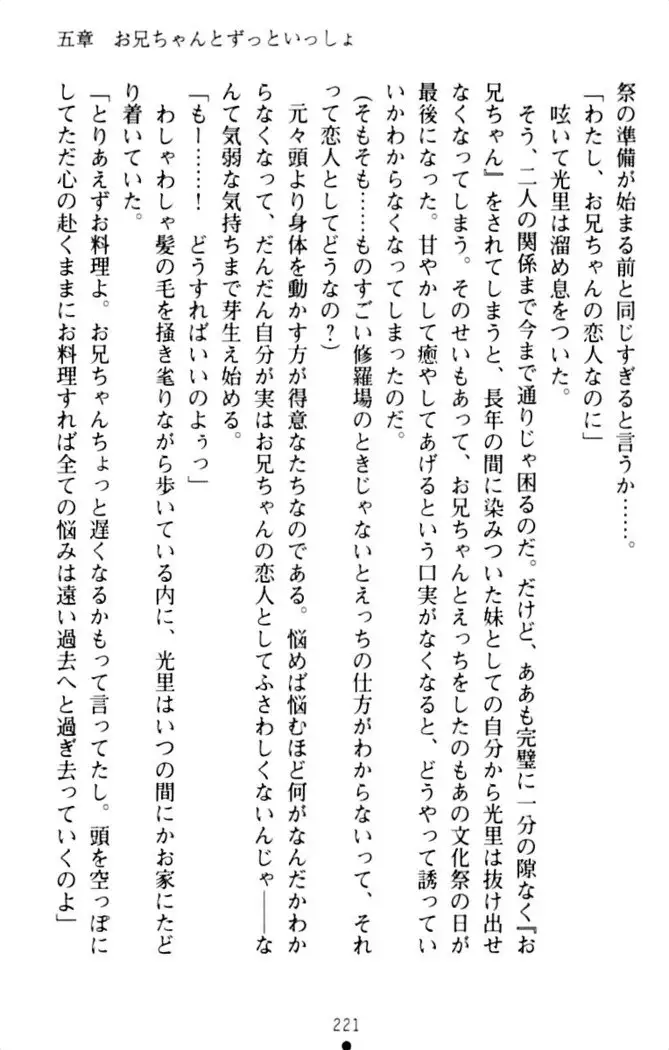 五章　お兄ちゃんとずっといっしょ
祭の準備が始まる前と同じすぎると言うか……。
「わたし、お兄ちゃんの恋人なのに」
呟いて光里は溜め息をついた。
そう、二人の関係まで今まで通りじゃ困るのだ。だけど、ああも完璧に一分の隙なく『お
兄ちゃん』をされてしまうと、長年の間に染みついた妹としての自分から光里は抜け出せ
なくなってしまう。そのせいもあって、お兄ちゃんとえっちをしたのもあの文化祭の日が
最後になった。甘やかして癒やしてあげるという口実がなくなると、どうやって誘ってい
いかわからなくなってしまったのだ。
(そもそも……ものすごい修羅場のときじゃないとえっちの仕方がわからないって、それ
って恋人としてどうなの？)
元々頭より身体を動かす方が得意なたちなのである。悩めば悩むほど何がなんだかわか
らなくなって、だんだん自分が実はお兄ちゃんの恋人としてふさわしくないんじゃ――な
んて気弱な気持ちまで芽生え始める。
「もー……！　どうすればいいのよぅっ」
わしゃわしゃ髪の毛を掻き毟りながら歩いている内に、光里はいつの間にかお家にたど
り着いていた。
「とりあえずお料理よ。お兄ちゃんちょっと遅くなるかもって言ってたし。頭を空っぽに
してただ心の赴くままにお料理すれば全ての悩みは遠い過去へと過ぎ去っていくのよ」
221